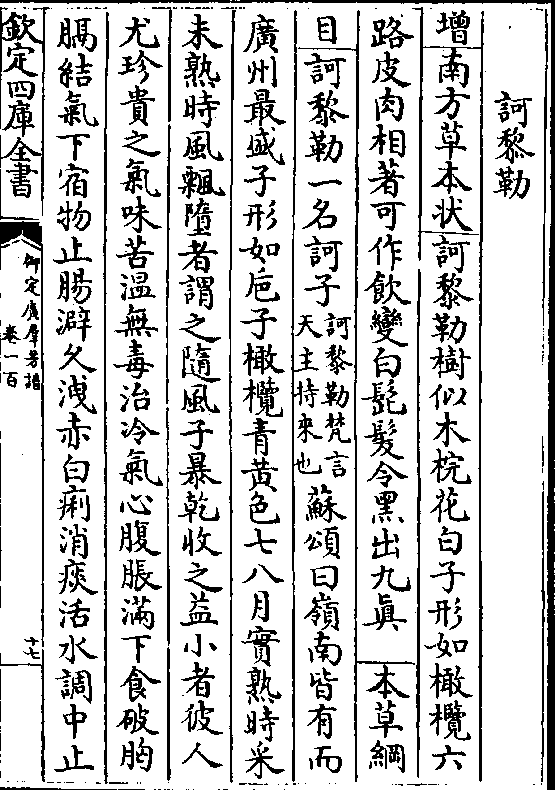 訶黎勒
增南方草本狀訶黎勒樹似木梡花白子形如橄欖六
路皮肉相著可作飲變白髭髮令黑出九眞　本草綱
目訶黎勒一名訶子訶黎勒梵言天主持來也蘇頌曰嶺南皆有而
廣州最盛子形如巵子橄欖青黃色七八月實熟時采
未熟時風飄墮者謂之隨風子暴乾收之益小者彼人
尤珍貴之氣味苦溫無毒治冷氣心腹脹滿下食破胸
膈結氣下宿物止腸澼久洩赤白痢消痰活水調中止
欽定四庫全書
御定廣羣芳譜
卷一百
十七